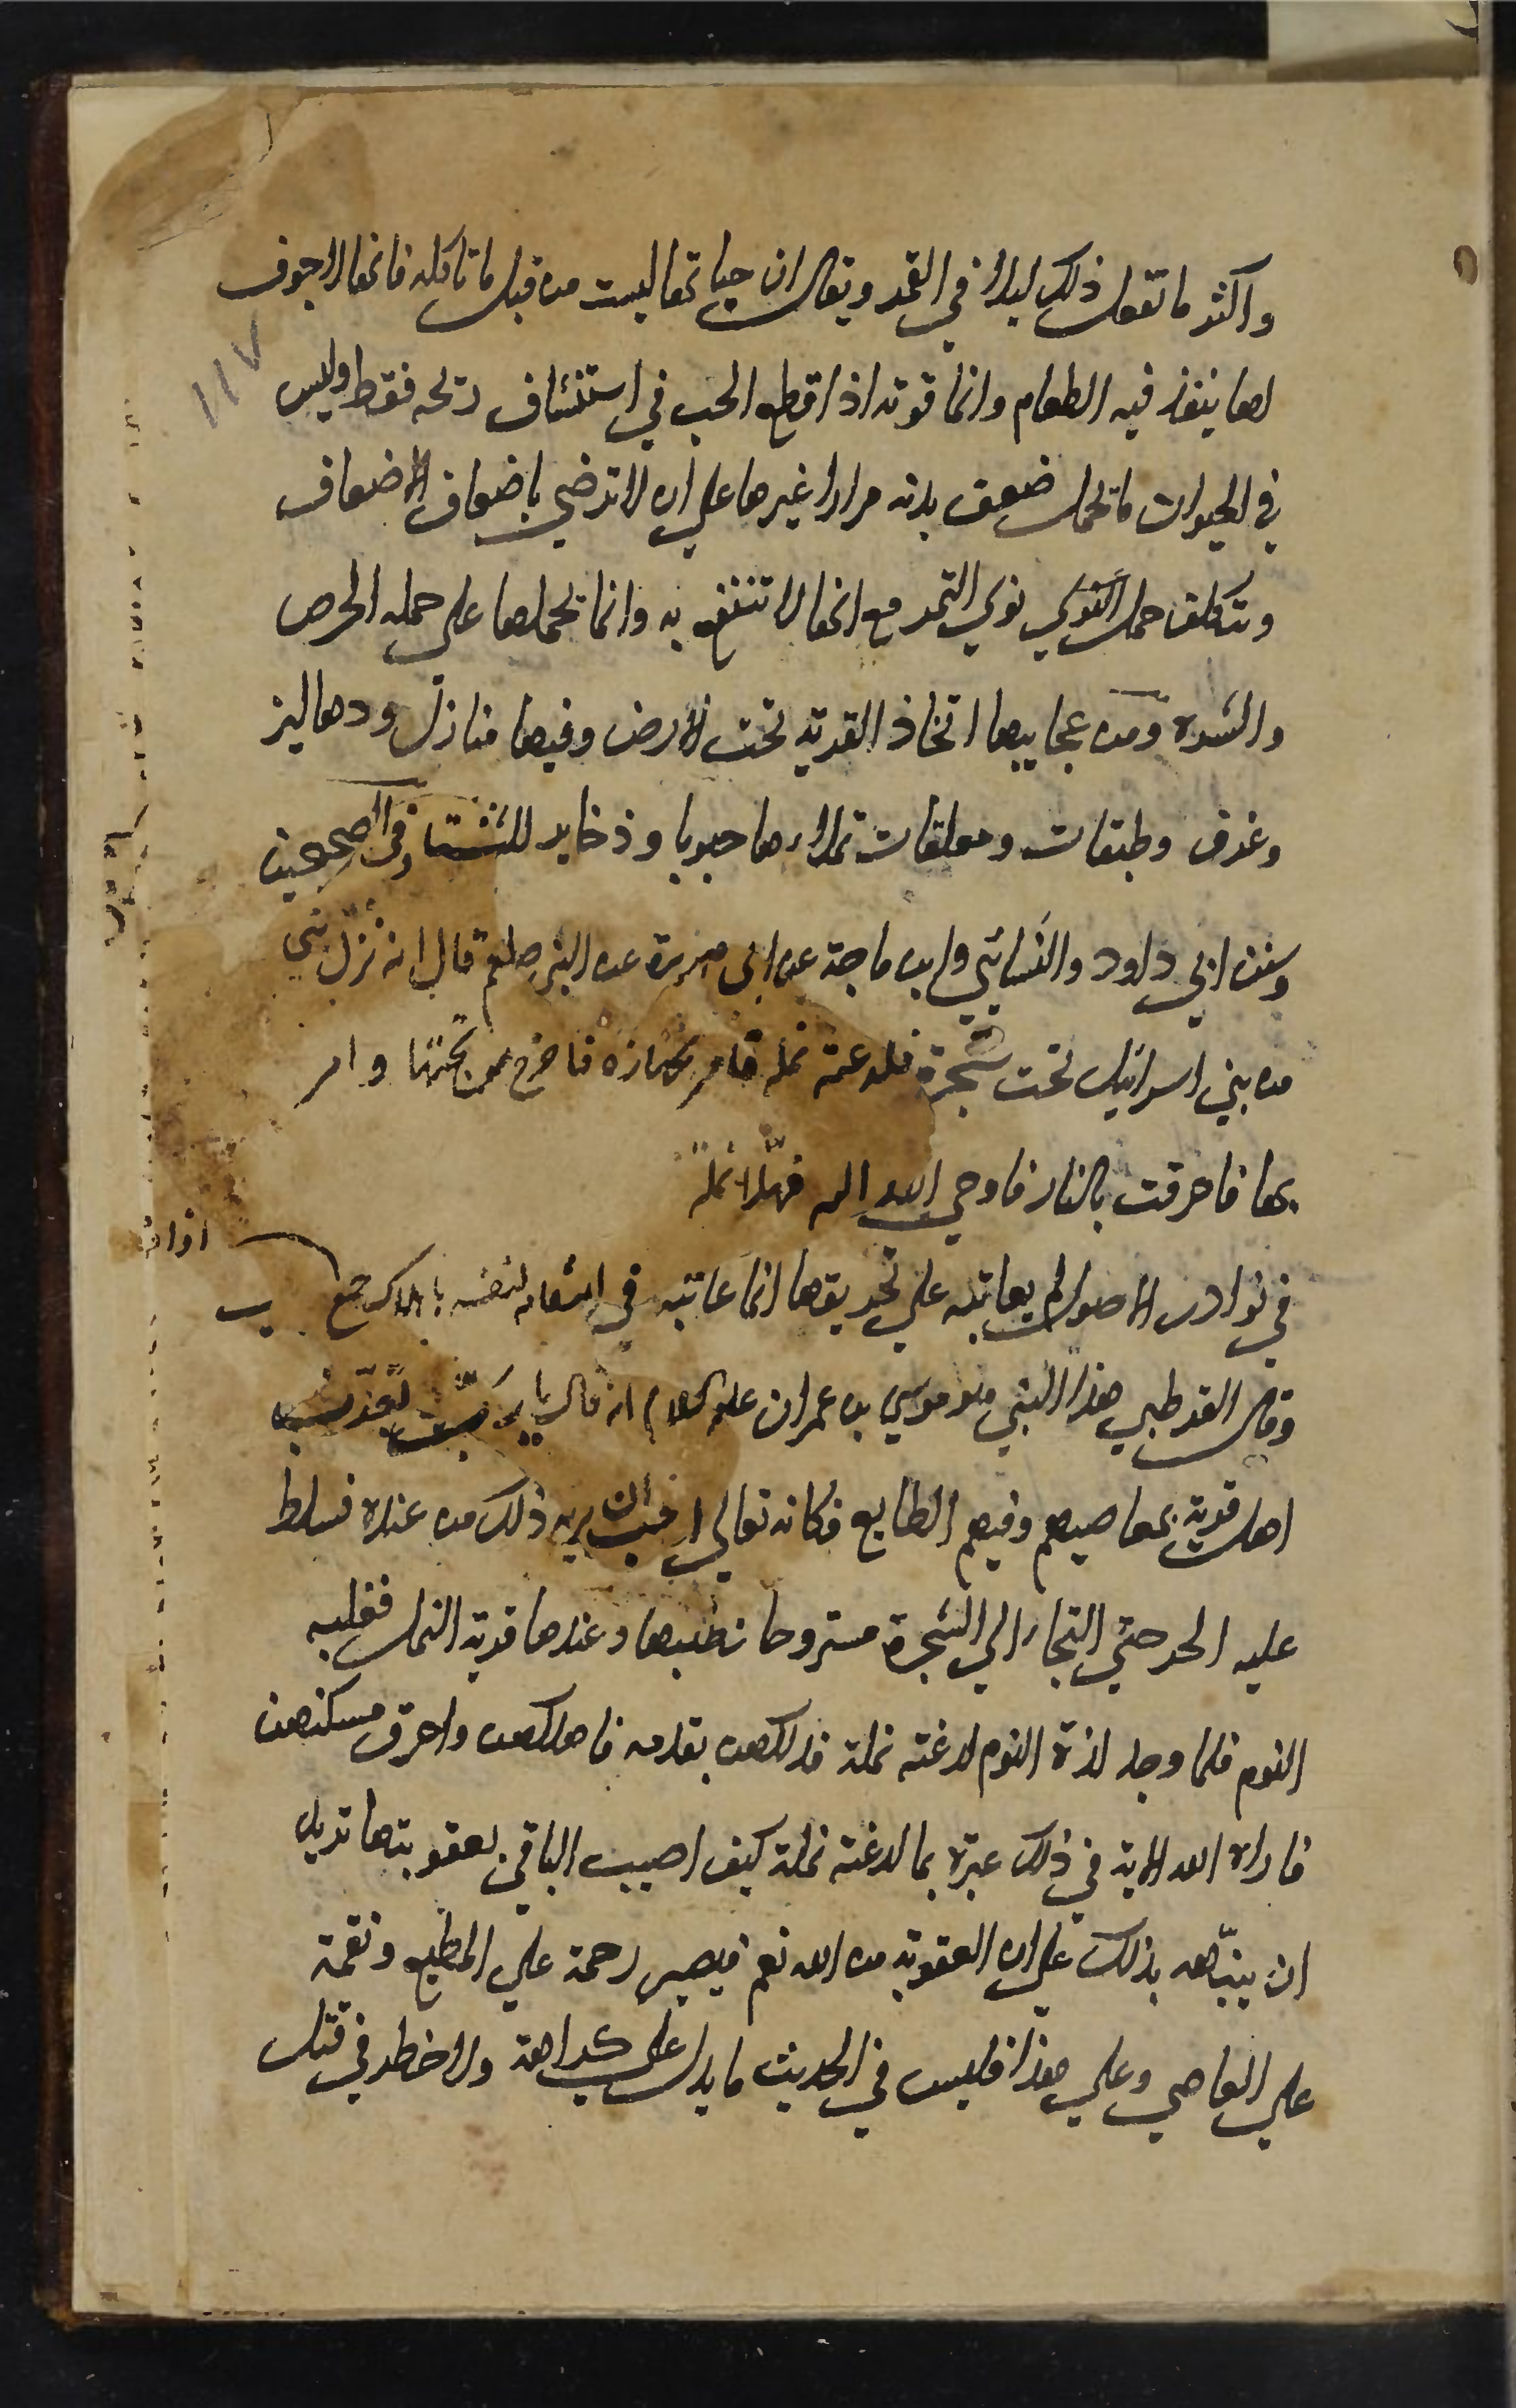 واكثر ما تفعل ذلك ليلا في القمر ويقال ان حياتها ليست من قبل ما تاكله فانها لا جوف
١١٧
لها ينفذ فيه الطعام وانما قوته اذا قطع الحب في استنشاق ريحه فقط وليس
في الحيوان ما يحمل ضعف بدنه مرارا غيرها على ان لا ترضي باضعاف الاضعاف
وتتكلف حمل النوي نوي التمر مع انها لا تنتفع به وانما يحملها على حمله الحرص
والشره ومن عجايبها اتخاذ القرية تحت الارض وفيها منازل ودهاليز
وغرف وطبقات ومعلقات تملاءها حبوبا وذخاير للشتا وفى الصحيحين
وسنن ابي داود والنسائي وابن ماجة عن ابى هريرة عن النبى صلعم قال انه نزل نبى
من بني اسرائيل تحت شجرة فلدغته نملة فامر بجهازه فاخرج من تحتها وامر
بها فاحرقت بالنار فاوحي الله اليه فهلا نملة
في نوادر الاصول لم يعاتبه علي تحريقها انما عاتبه في انتقامه لنفسه باهلاك جمع
وقال القرطبي هذا النبي هو موسي بن عمران عليه السلام انه قال يا رب تعذب
اهل قرية بمعاصيهم وفيهم الطايع فكانه تعالي احب ان يريه ذلك من عنده فسلط
عليه الحر حتي التجا الي الشجرة مستروحا بظلها وعندها قرية النمل فغلبه
النوم فلما وجد لذة النوم لدغته نملة فدلكهن بقدمه فاهلكهن واحرق مسكنهن
فاراه الله الاية في ذلك عبرة بما لدغته نملة كيف اصيب الباقي بعقوبتها يريد
ان ينبهه بذلك على ان العقوبة من الله تعم فيصير رحمة علي المطيع ونقمة
علي العاصي وعلي هذا فليس في الحديث ما يدل علي كراهة ولا خطر في قتل